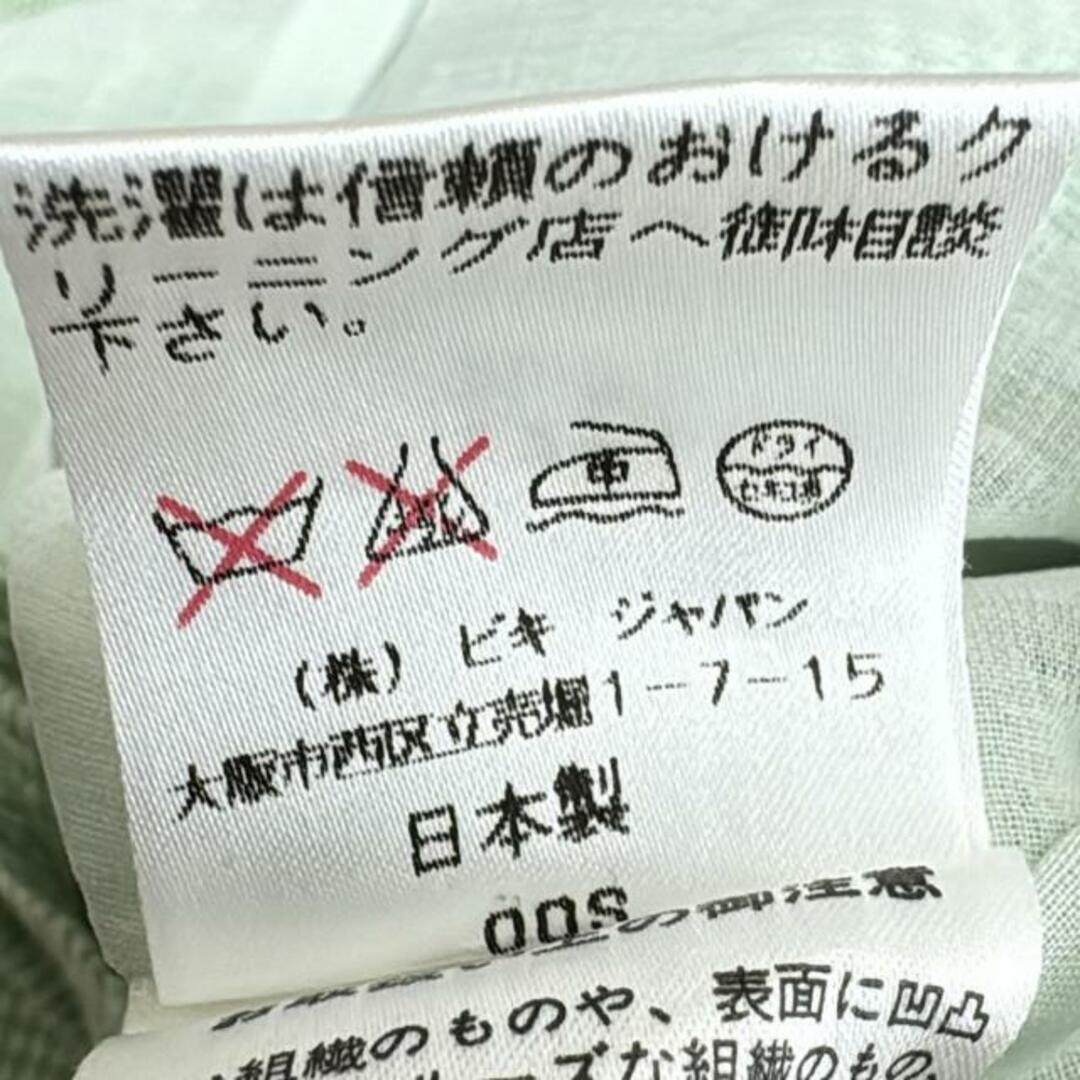 洗濯は信頼のおけるク
リーニング店へ御相談
下さい。
中
ドライ
セキユ系
(株) ビキ ジャパン
大阪市西区立売堀1-7-15
日本製
00S
の御注意
組織のものや、表面に凹凸
ズな組織のもの、